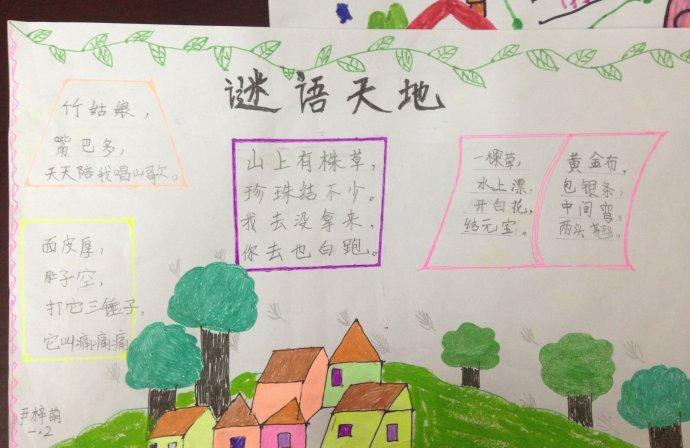 谜语天地
竹姑娘，
嘴巴多，
天天陪我唱山歌。
面皮厚，
肚子空，
打它三锤子，
它叫痛痛痛
山上有株草，
珍珠结不少。
我去没拿来，
你去也白跑。
一棵草，
水上漂，
开白花，
结元宝。
黄金布，
包银条，
中间弯，
两头翘。
尹梓萌
一.2